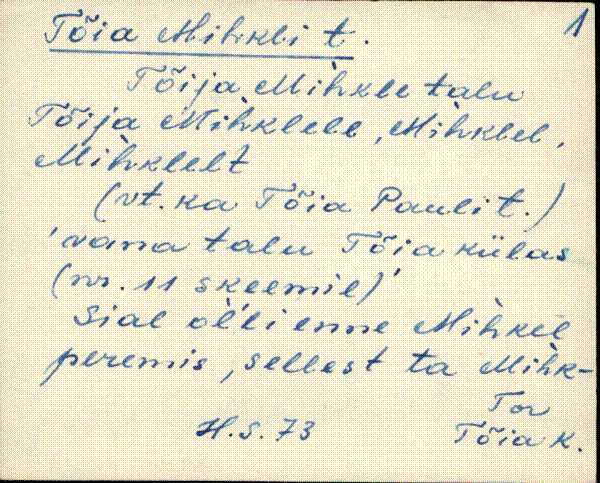 Tõia Mihkli t. 1
Tõija Mìhkle talu
Tõija Mìhklele, Mìhklel,
Mìhklelt
(vt. ka Tõia Pauli t.)
'vana talu Tõia külas
(nr. 11 skeemil)'
Sial òl'li enne Mìhkel
peremis, sellest ta Mìhk-
Tor
H.S. 73 Tõia k.